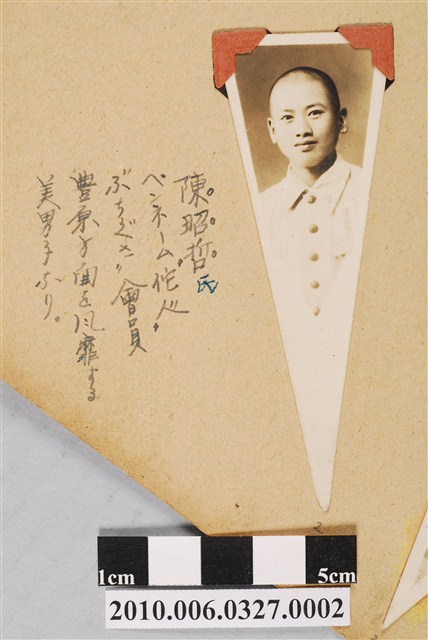 陳昭哲氏
ペンネーム"佗人"
"ぶちぐさ"會員
豊原女界を風靡する
美男子ぶり。
1cm
5cm
2010.006.0327.0002